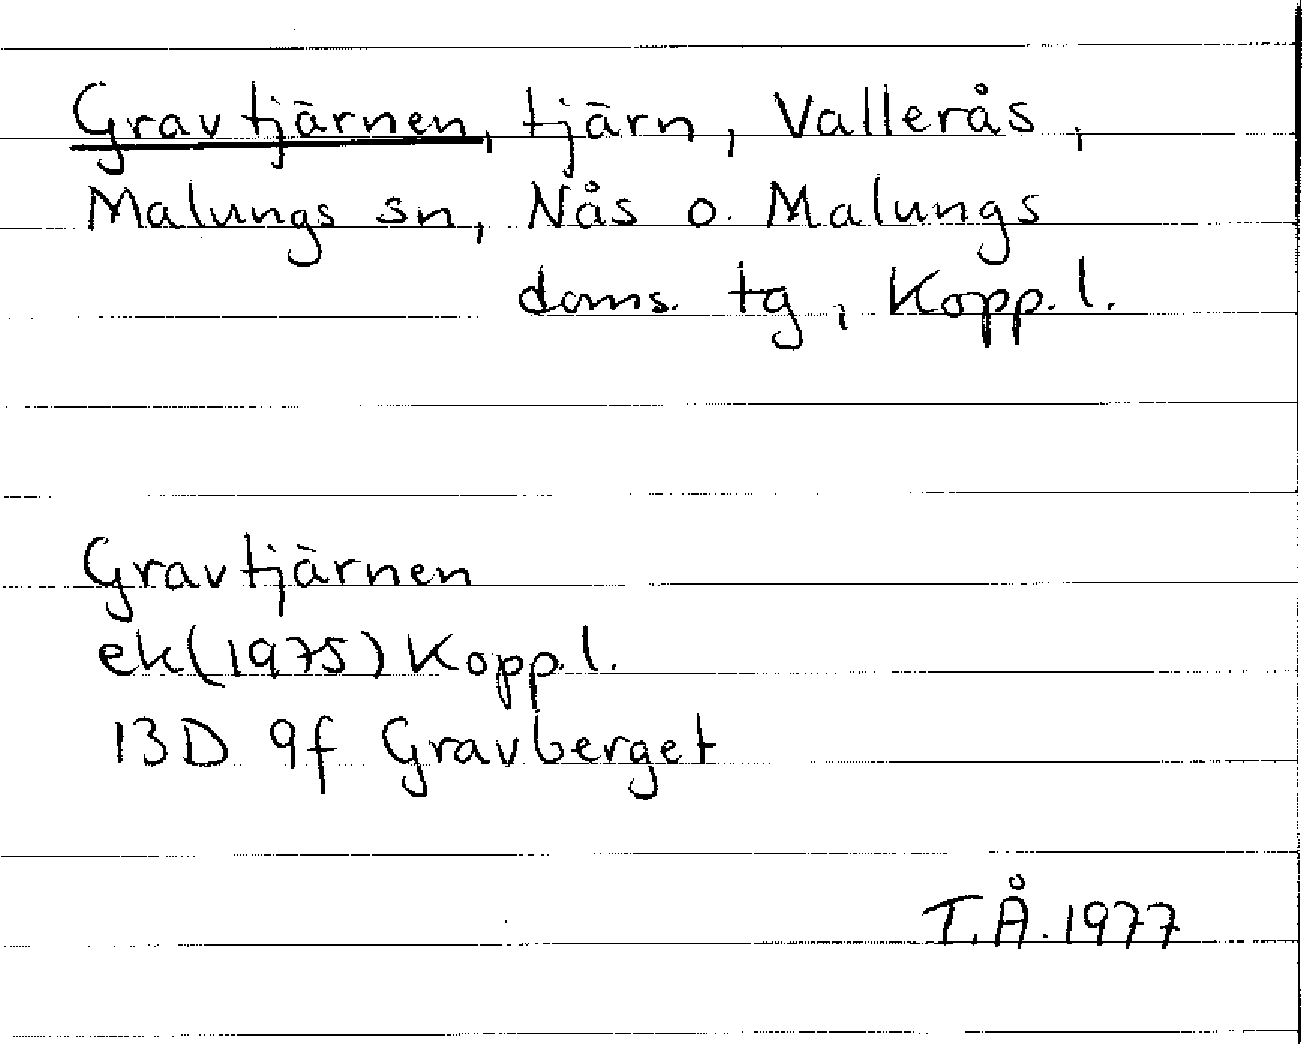 Gravtjärnen, tjärn, Vallerås,
Malungs sn, Nås o. Malungs
doms. tg, Kopp. l.
Gravtjärnen
ek(1975) Kopp.l.
13D 9f Gravberget
T.Å. 1977